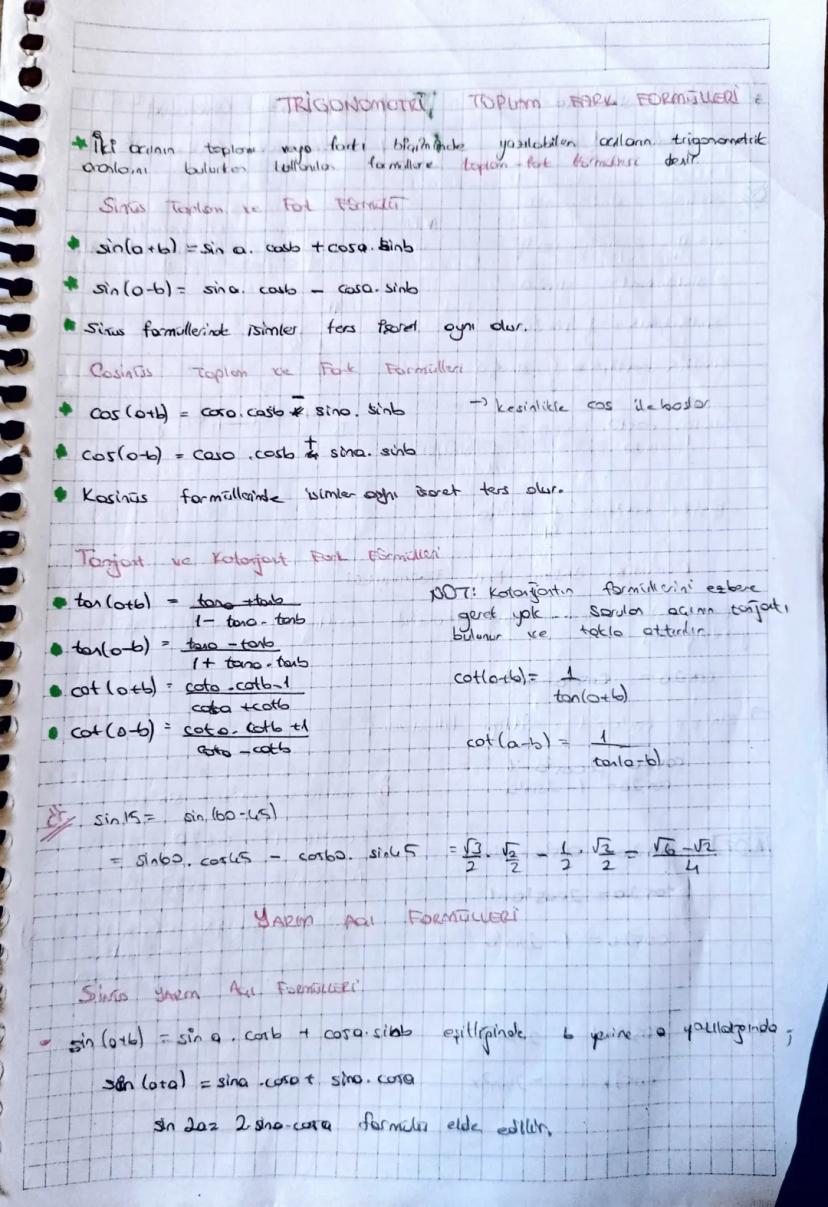 TRİGONOMOTRİ, TOPLAM FARK FORMÜLLERİ :
* İki açının toplam veya farkı biçiminde yazılabilen açıların trigonometrik
oranlarını bulurken kullanılan formüllere toplam-fark formülleri denir
Sinüs Toplam ve Fark Formülü
* sin(a+b) = sin a. cosb + cosa. sinb
* sin(a-b) = sina. cosb - cosa. sinb
* Sinüs formüllerinde isimler ters işaret aynı olur.
Cosinüs Toplam ve Fark Formülleri
* cos(a+b) = cosa. cosb - sina. sinb → kesinlikle cos ile başlar
* cos(a-b) = cosa .cosb + sina. sinb
* Kosinüs formüllerinde isimler aynı işaret ters olur.
Tanjant ve Kotanjant Fark Formülleri
• tan(a+b) = tana + tanb / 1 - tana . tanb
• tan(a-b) = tana - tanb / 1 + tana . tanb
• cot(a+b) = cota . cotb - 1 / cota + cotb
• cot(a-b) = cota . cotb + 1 / cota - cotb
NOT: Kotanjantın formüllerini ezbere
gerek yok ... Sorulan açının tanjantı
bulunur ve takla attırılır
cot(a+b) = 1 / tan(a+b)
cot(a-b) = 1 / tan(a-b)
Ör/ sin15 = sin(60-45)
= sin60. cos45 - cos60. sin45 = √3/2 . √2/2 - 1/2 . √2/2 = √6 - √2 / 4
YARIM AÇI FORMÜLLERİ
Sinüs YARIM AÇI FORMÜLLERİ
• sin(a+b) = sin a . cosb + cosa. sinb eşitliğinde b yerine a yazıldığında ;
sin(a+a) = sina .cosa + sina. cosa
sin 2a = 2. sina. cosa formülü elde edilir.